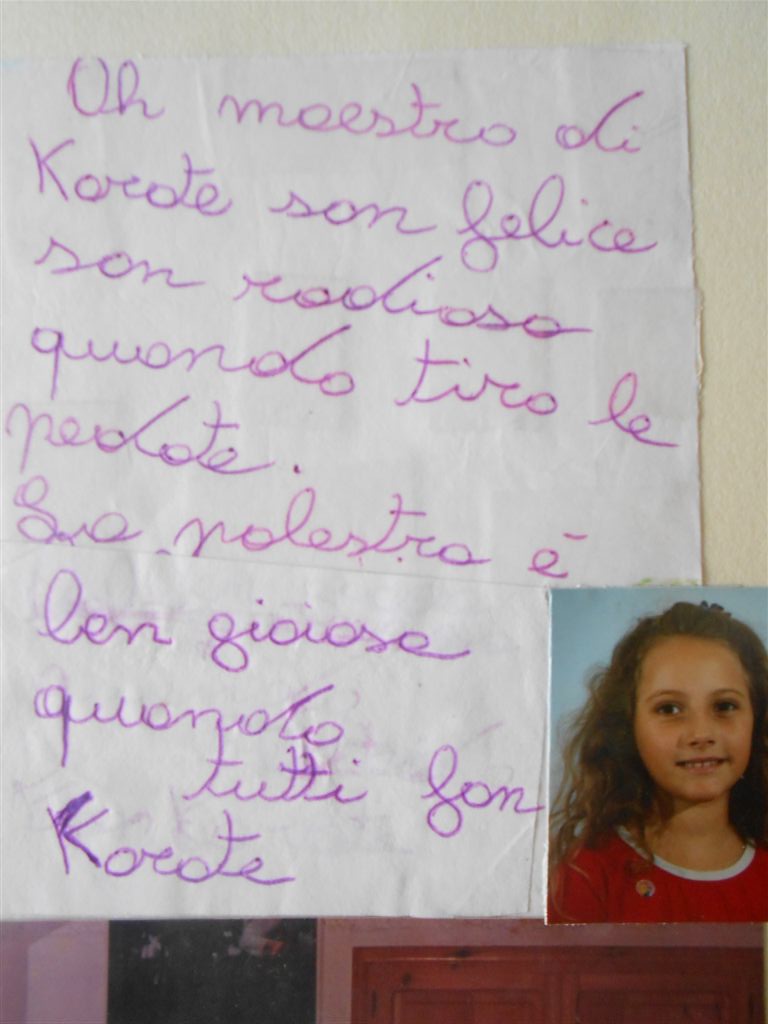 Oh maestro di
Karate son felice
son radiosa
quando tiro le
pedate.
La palestra è
ben gioiosa
quando
tutti fan
Karate